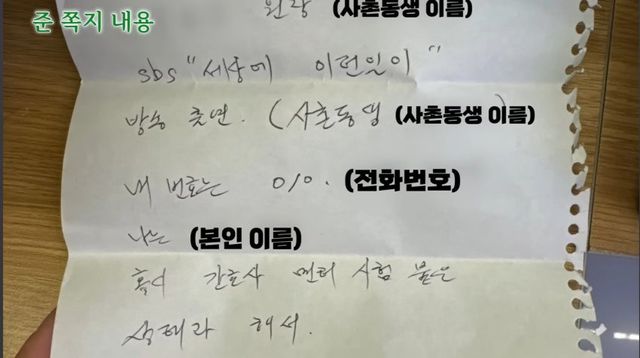 준 쪽지 내용
원장 (사촌동생 이름)
sbs "세상에 이런일이"
방송 출연. (사촌동생 (사촌동생 이름))
내 번호는 010. (전화번호)
나는 (본인 이름)
혹시 간호사 면허 시험 붙은
상태라 해서.